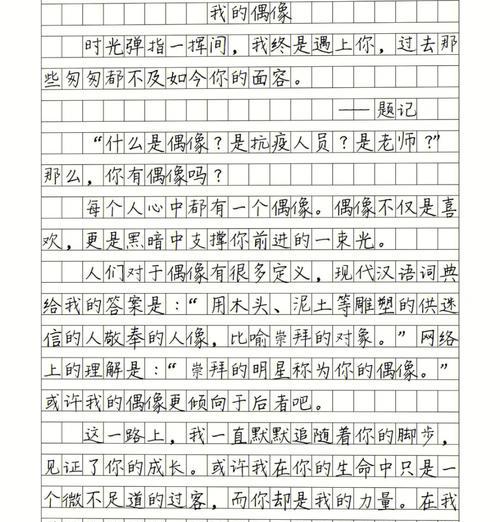 我的偶像
时光弹指一挥间，我终是遇上你，过去那
些匆匆都不及如今你的面容。
——题记
“什么是偶像？是抗疫人员？是老师？”
那么，你有偶像吗？
每个人心中都有一个偶像。偶像不仅是喜
欢，更是黑暗中支撑你前进的一束光。
人们对于偶像有很多定义，现代汉语词典
给我的答案是：“用木头、泥土等雕塑的供迷
信的人敬奉的人像，比喻崇拜的对象。”网络
上的理解是：“崇拜的明星称为你的偶像。”
或许我的偶像更倾向于后者吧。
这一路上，我一直默默追随着你的脚步，
见证了你的成长。或许我在你的生命中只是一
个微不足道的过客，而你却是我的力量。在我